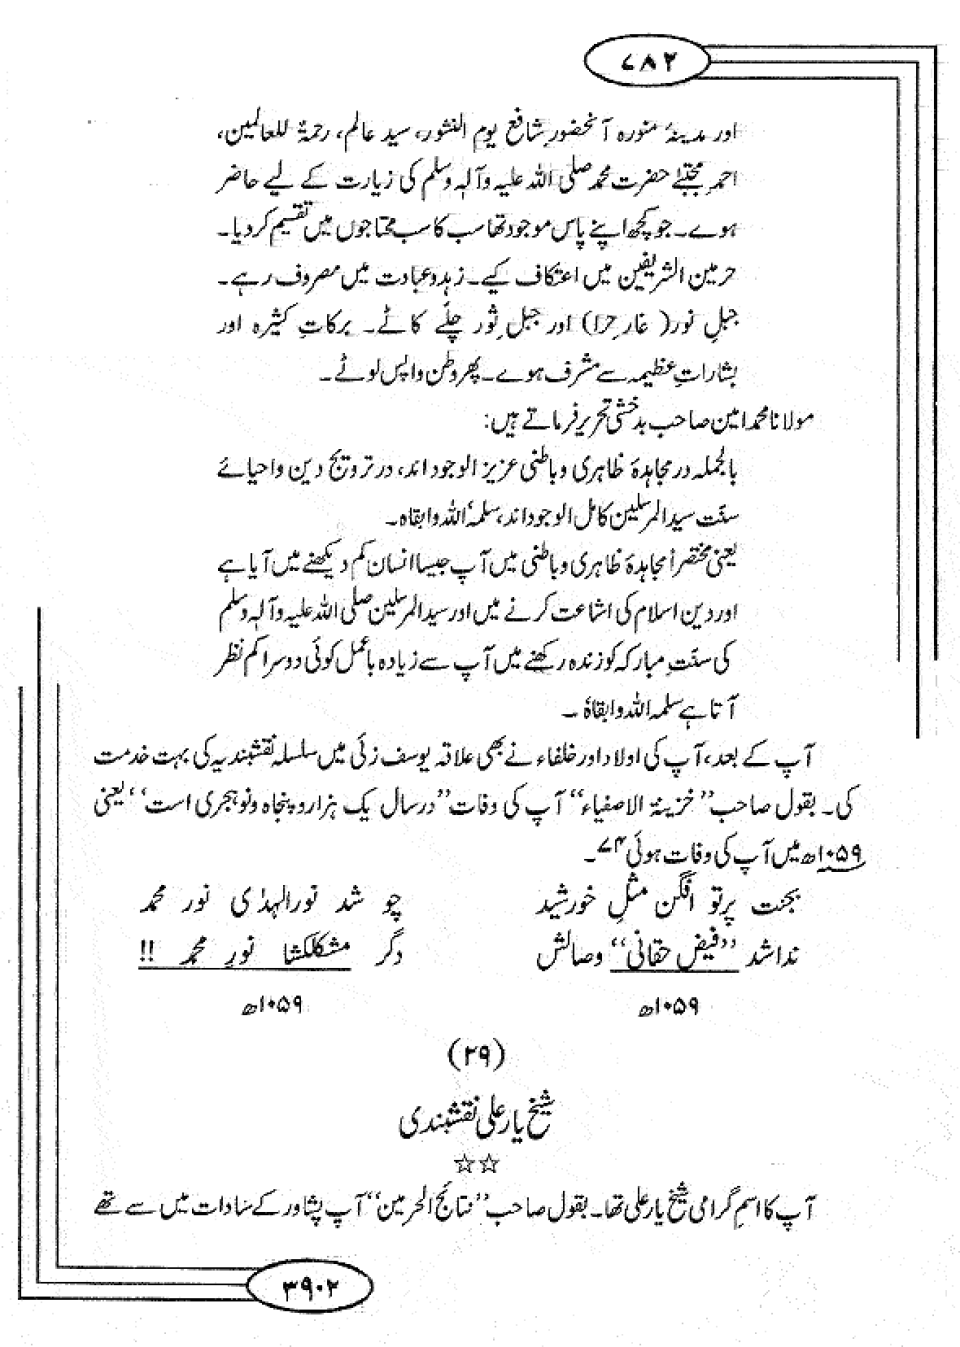 ۷۸۲
اور مدینۂ منورہ آنحضور شافع یوم النشور، سید عالم، رحمۃ للعالمین،
احمدِ مجتبےٰ حضرت محمد صلی اللہ علیہ وآلہٖ وسلم کی زیارت کے لیے حاضر
ہوے۔ جو کچھ اپنے پاس موجود تھا سب کا سب محتاجوں میں تقسیم کر دیا۔
حرمین الشریفین میں اعتکاف کیے۔ زہد و عبادت میں مصروف رہے۔
جبلِ نور (غارِ حرا) اور جبلِ ثور چلّے کاٹے۔ برکاتِ کثیرہ اور
بشاراتِ عظیمہ سے مشرف ہوے۔ پھر وطن واپس لوٹے۔
مولانا محمد امین صاحب بدخشی تحریر فرماتے ہیں:
بالجملہ در مجاہدۂ ظاہری و باطنی عزیز الوجود اند، در ترویج دین و احیائے
سنّت سید المرسلین کامل الوجود اند، سلمہٗ اللہ و ابقاہ۔
یعنی مختصراً مجاہدۂ ظاہری و باطنی میں آپ جیسا انسان کم دیکھنے میں آیا ہے
اور دین اسلام کی اشاعت کرنے میں اور سید المرسلین صلی اللہ علیہ وآلہٖ وسلم
کی سنّتِ مبارکہ کو زندہ رکھنے میں آپ سے زیادہ باعمل کوئی دوسرا کم نظر
آتا ہے سلمہ اللہ و ابقاہٗ ۔
آپ کے بعد، آپ کی اولاد اور خلفاء نے بھی علاقہ یوسف زئی میں سلسلہ نقشبندیہ کی بہت خدمت
کی۔ بقول صاحب ”خزینۃ الاصفیاء“ آپ کی وفات ”در سال یک ہزار و پنجاہ و نو ہجری است“ یعنی
۱۰۵۹ھ میں آپ کی وفات ہوئی ۷۴۔
بجنت پرتو افگن مثلِ خورشید چو شد نورالہدٰی نور محمد
نداشد ”فیض حقانی“ وصالش دگر مشکلکشا نور محمد !!
۱۰۵۹ھ ۱۰۵۹ھ
(۲۹)
شیخ یار علی نقشبندی
☆☆
آپ کا اسمِ گرامی شیخ یار علی تھا۔ بقول صاحب ”نتائج الحرمین“ آپ پشاور کے سادات میں سے تھے
۳۹۰۲